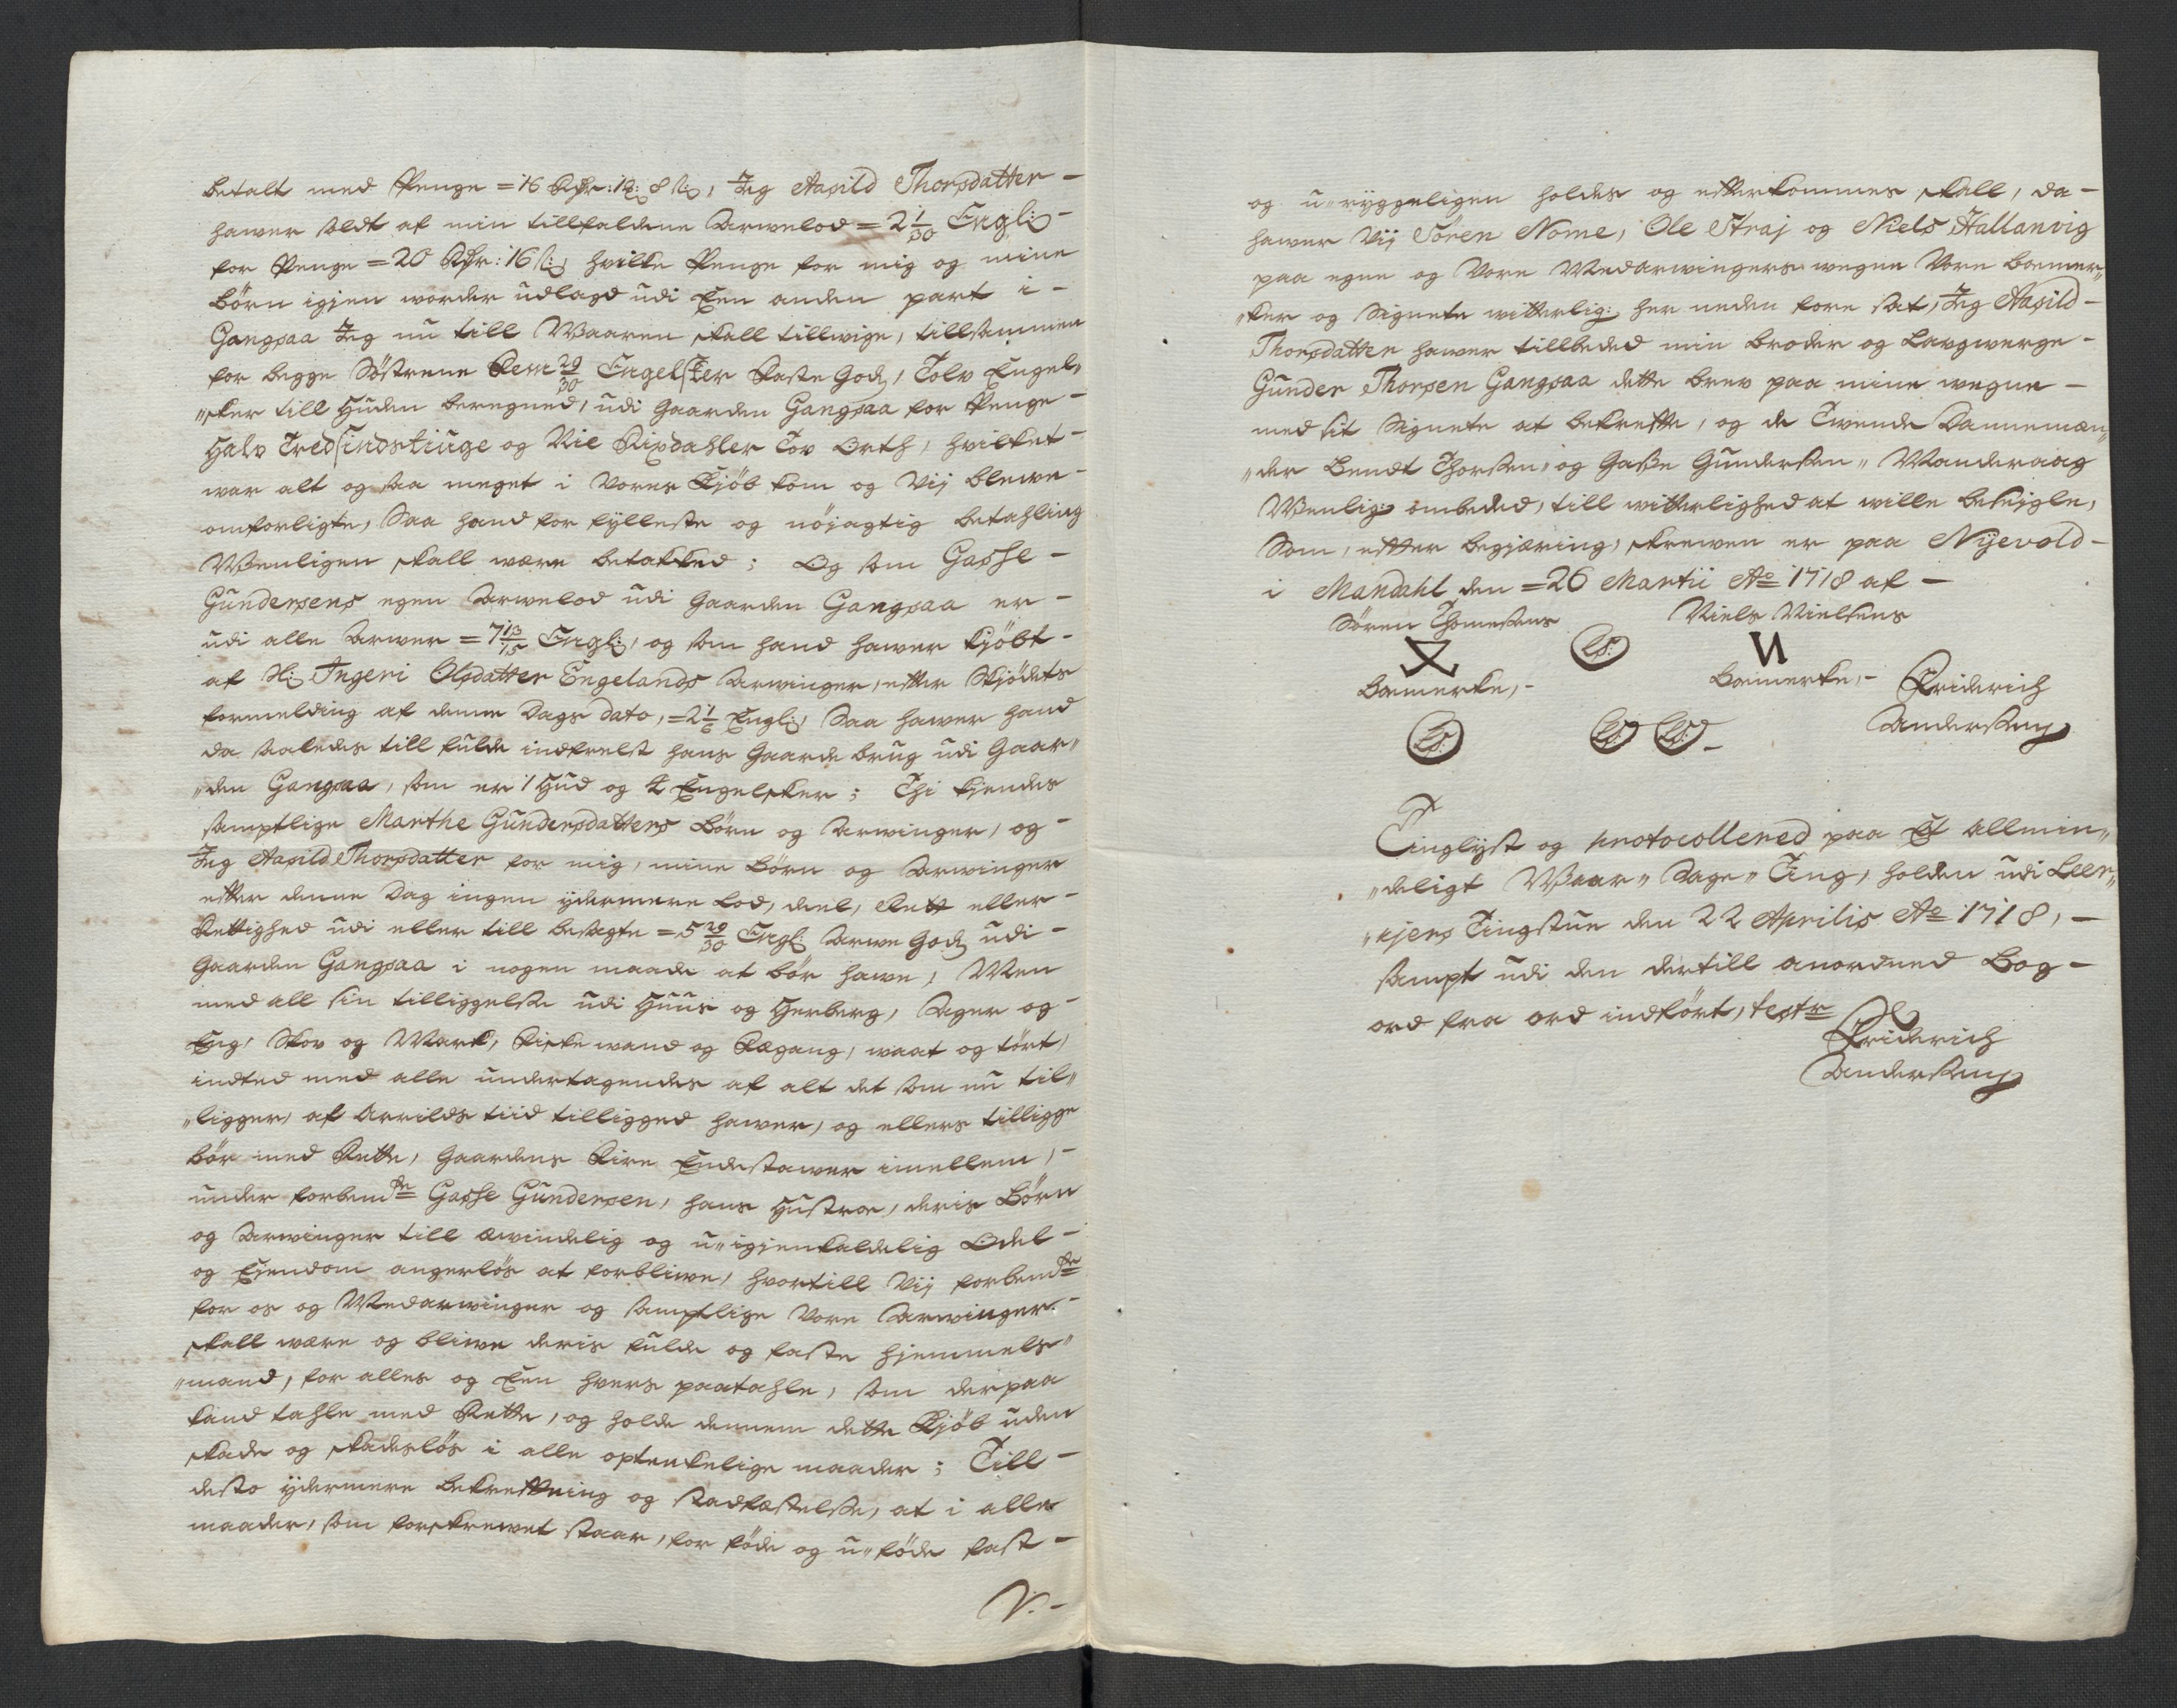 betalt med Penge = 16 Rdr: 1 8 , Jeg Aasild Thorsdatter -
hawer soldt af min tillfaldene Arwelod = 2 1/30 Engl: -
for Penge = 20 Rdr: 16 s: hvilke Penge for mig og mine
Börn igjen worder udlagd udi Een anden part i -
Gangsaa Jeg nu till Waaren skall tillwige, tillsammen
for begge Söstrene Fem 29/30 Engelsker Faste Gods, Tolv Engel„
„sker till Huden beregned, udi Gaarden Gangsaa for Penge -
Halv Tredsindstiuge og Nie Rixdahler Tov Orth, hvilket -
war alt og saa meget i Vores Kjöb kom og Vij blewe -
omforligte, Saa hand for fylleste og nöjagtig betahling
Wenligen skall være betakked; Og som Gasse -
Gundersens egen Arwelod udi Gaarden Gangsaa er -
udi alle Arwer = 7 13/15 Engl:, og som hand hawer Kjöbt -
af Sl: Ingeri Olsdatter Engelands Arwinger, efter Skjödets
formelding af denne Dags dato, = 2 1/6 Engl:, Saa hawer hand
da saaledes till fulde indfrelst hans Gaarde brug udi Gaar„
„den Gangsaa, som er 1 Hud og 4 Engelsker; Thi kjendes
samptlige Marthe Gundersdatters Börn og Arwinger, og -
Jeg Aasild Thorsdatter for mig, mine Börn og Arwinger
efter denne Dag ingen ydermere Lod, deel, Rett eller -
Rettighed udi eller till besagte = 5 29/30 Engl: Arwe Gods udi -
Gaarden Gangsaa i nogen maade at bör hawe, Men
med all sin tilliggelse udi Huus og Herberg, Ager og -
Eng, Skov og Mark, Fiske wand og Fægang, waat og tört,
indted med alle undertagendes af alt det som nu til„
„ligger, af Arrilds tiid tilligged hawer, og ellers tilligge
bör med Rette, Gaardens Fire Endestawer imellem, -
under forbemte Gasse Gundersen, hans Hustroe, deris Börn
og Arwinger till ævindelig og u„igjenkaldelig Odel -
og Ejendom angerlös at forbliwe, hvortill Vij forbemte
for os og Medarwinger og samptlige Vore Arwinger -
skall være og bliwe deris fulde og faste Hjemmels„
„mand, for alles og Een hvers paatahle, som derpaa
kand tahle med Rette, og holde dennem dette Kjöb uden
skade og skadeslös i alle optenkelige maader; Till -
desto ydermere bekreftning og stadfæstelse, at i alle
maader, som forskrewet staar, for föde og u„föde fast -
V: -
og u„ryggeligen holdes og efterkommes skall, da -
hawer Vij Sören Nome, Ole Straj og Niels Hallanvig
paa egne og Vore Medarwingers wegne Vore Boemer„
„ker og Signete witterlig: her neden fore sat, Jeg Aasild -
Thorsdatter hawer tillbeded min broder og Laugwerge -
Gunder Thorsen Gangsaa dette brev paa mine wegne -
med sit Signete at bekrefte, og de Twende Dannemæn„
„der Bendt Thorsen, og Gasse Gundersen„ Manderaag
Wenlig: ombeded, till witterlighed at wille besejgle,
Som, efter begjæring, skrewen er paa Nyevold -
i Mandahl den = 26 Martii Ao 1718 af -
Sören Thomesens Niels Nielsens
LS:
Boemerke, - Boemerke, - Friderich
Andersen
LS: LS: LS: -
Tinglyst og protocollered paa Et Allmin„
„deligt Waar„ Sage„ Ting, holden udi Leer„
„kjers Tingstue den 22 Aprilis Ao 1718, -
sampt udi den dertill anordned Bog -
ord fra ord indfört, testr
Friderich
Andersen